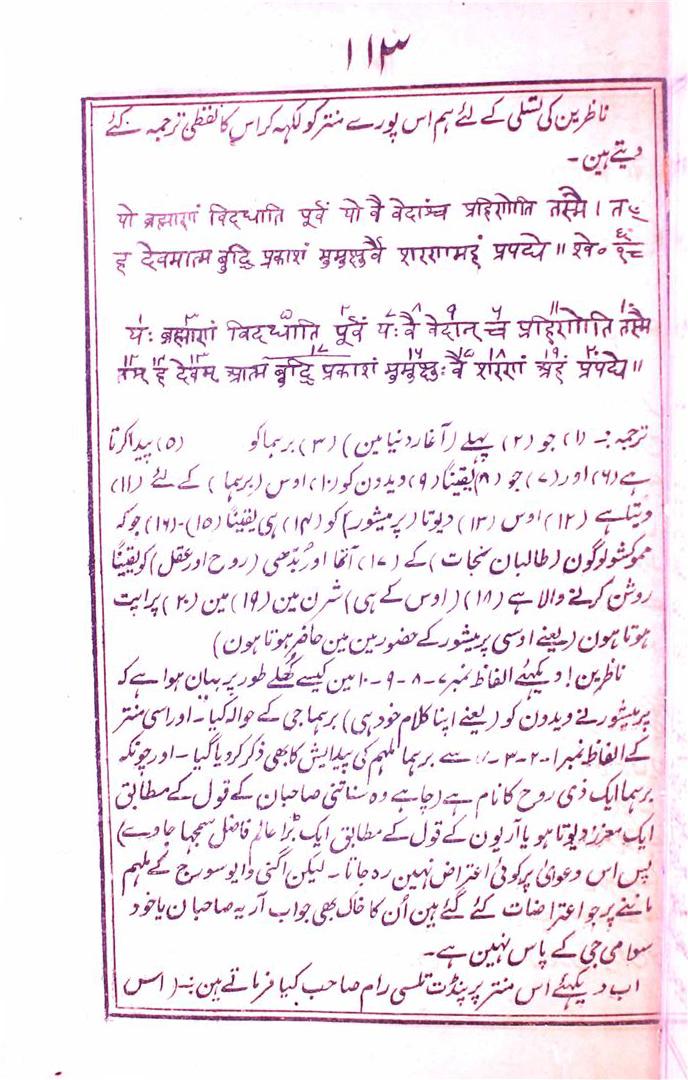 ۱۱۳
ناظرین کی تسلی کے لئے ہم اس پورے منتر کو لکھہ کر اس کا لفظی ترجمہ کئے
دیتے ہین۔
यो ब्रह्माणं विद्धाति पूर्वं यो वै वेदांश्च प्रहिणोति तस्मै। तᳬ
ह देवमात्म बुद्धि प्रकाशं मुमुक्षुर्वै शरणमहं प्रपद्ये॥ श्वे० ६/१८
यः ब्रह्माणं विद्धाति पूर्वं यः वै वेदान् च प्रहिणोति तस्मै
तम् ह देवम् आत्म बुद्धि प्रकाशं मुमुक्षुः वै शरणं अहं प्रपद्ये॥
ترجمہ:۔ (۱) جو (۲) پہلے (آغاز دنیا مین) (۳) برہما کو (۵) پیدا کرتا
ہے (۶) اور (۷) جو (۸) یقیناً (۹) ویدون کو (۱۰) اوس (برہما) کے لئے (۱۱)
دیتا ہے (۱۲) اوس (۱۳) دیوتا (پرمیشور) کو (۱۴) ہی یقیناً (۱۵)-(۱۶) جو کہ
مموکشو لوگون (طالبان نجات) کے (۱۷) آتما اور بُدھی (روح اور عقل) کو یقیناً
روشن کرنے والا ہے (۱۸) (اوس کے ہی) شرن مین (۱۹) مین (۲۰) پراپت
ہوتا ہون (یعنے اوسی پرمیشور کے حضور مین مین حاضر ہوتا ہون)
ناظرین! دیکھئے الفاظ نمبر ۷-۸-۹-۱۰ مین کیسے کُھلے طور پر بیان ہوا ہے کہ
پرمیشور نے ویدون کو (یعنے اپنا کلام خود ہی) برہما جی کے حوالہ کیا۔ اور اسی منتر
کے الفاظ نمبر ۱-۲-۳- سے برہما ملہم کی پیدایش کا بھی ذکر کر دیا گیا۔ اور چونکہ
برہما ایک ذی روح کا نام ہے (چاہے وہ سناتنی صاحبان کے قول کے مطابق
ایک معزز دیوتا ہو یا آریون کے قول کے مطابق ایک بڑا عالم فاضل سمجہا جاوے)
پس اس دعویٰ پر کوئی اعتراض نہین رہ جاتا۔ لیکن اگنی وایو سورج کے ملہم
ماننے پر جو اعتراضات کئے گئے ہین اُن کا خاک بھی جواب آریہ صاحبان یا خود
سوامی جی کے پاس نہین ہے۔
اب دیکھئے اس منتر پر پنڈت تلسی رام صاحب کیا فرماتے ہین:۔ (اس